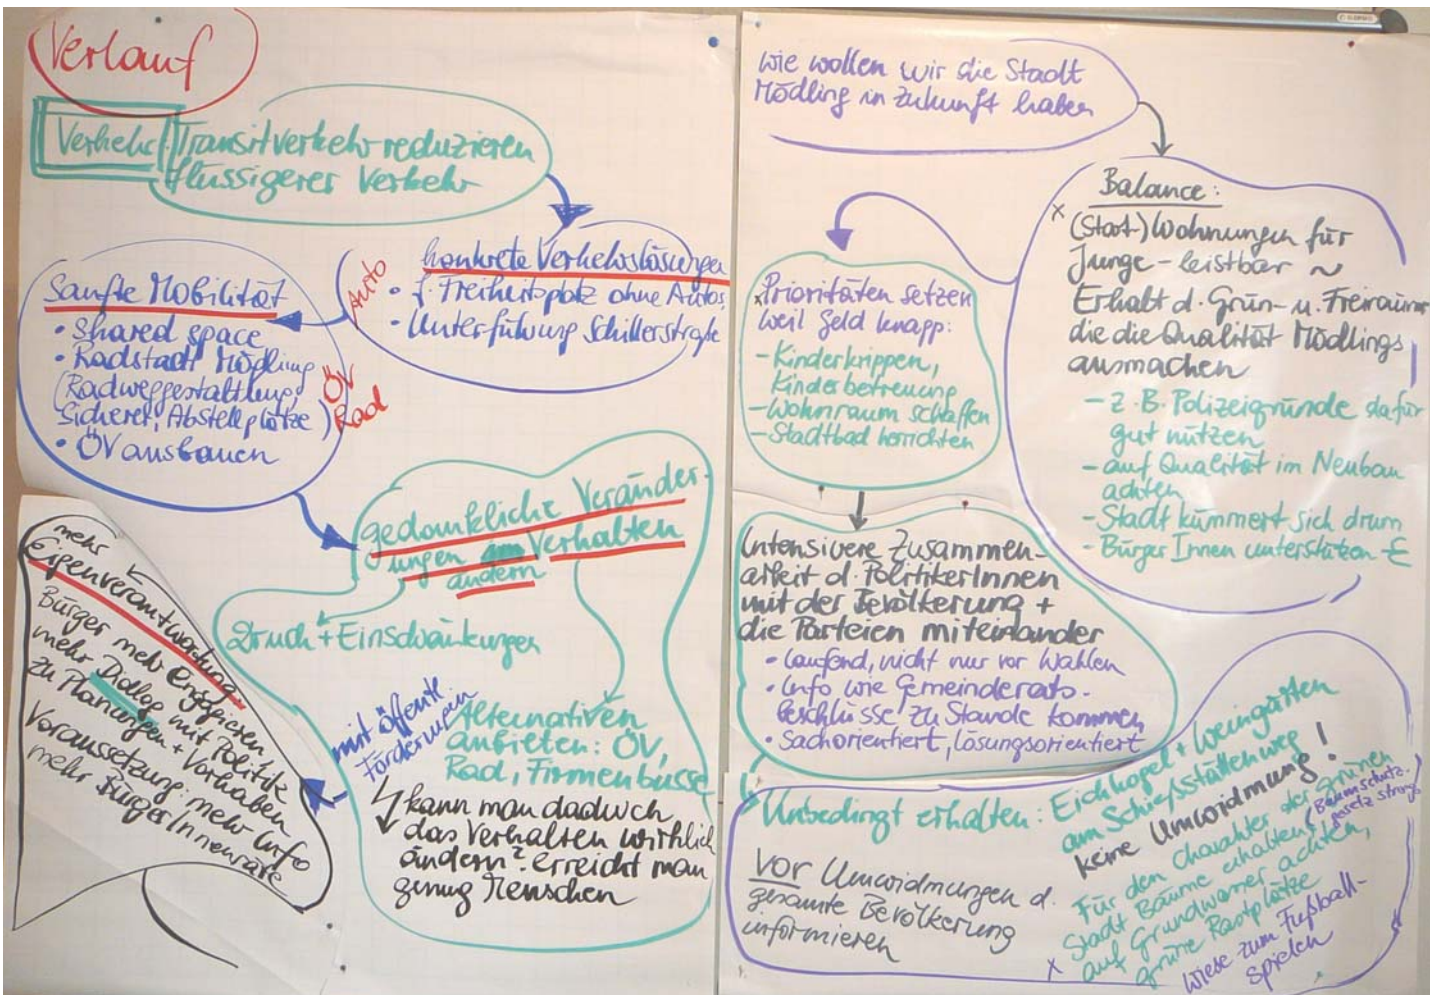 Verlauf
Verkehr: Transitverkehr reduzieren
flüssigerer Verkehr
konkrete Verkehrslösungen
• Freiheitsplatz ohne Autos,
• Unterführung Schillerstraße
Auto
ÖV
Rad
Sanfte Mobilität
• shared space
• Radstadt Mödling
(Radweggestaltung,
Sicherer, Abstellplätze)
• ÖV ausbauen
gedankliche Veränder-
ungen Verhalten
ändern
Druck + Einschränkungen
Alternativen
anbieten: ÖV,
Rad, Firmenbusse
kann man dadurch
das Verhalten wirklich
ändern? erreicht man
genug Menschen
mit öffentl.
Förderungen
mehr
Eigenverantwortung
Bürger mehr engagieren,
mehr Dialog mit Politik
zu Planungen + Vorhaben
Voraussetzung: mehr Info
mehr BürgerInnenräte
wie wollen wir die Stadt
Mödling in Zukunft haben
Balance:
x (Start-)Wohnungen für
Junge - leistbar ~
Erhalt d. Grün- u. Freiräume
die die Qualität Mödlings
ausmachen
- z.B. Polizeigründe dafür
gut nützen
- auf Qualität im Neubau
achten
- Stadt kümmert sich drum
- BürgerInnen unterstützen - €
x Prioritäten setzen
weil Geld knapp:
- Kinderkrippen,
Kinderbetreuung
- Wohnraum schaffen
- Stadtbad herrichten
Intensivere Zusammen-
arbeit d. PolitikerInnen
mit der Bevölkerung +
die Parteien miteinander
• laufend, nicht nur vor Wahlen
• Info wie Gemeinderats-
beschlüsse zu Stande kommen
• Sachorientiert, lösungsorientiert
Unbedingt erhalten: Eichkogel + Weingärten
am Schießstättenweg
keine Umwidmung!
VOR Umwidmungen d.
gesamte Bevölkerung
informieren
Für den Charakter der Grünen
Stadt Bäume erhalten, (Baumschutz-
gesetz streng)
auf Grundwasser achten,
grüne Rastplätze
x Wiese zum Fußball-
spielen